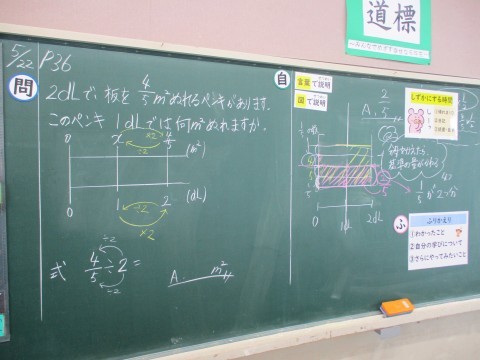 道標
5/22 P36
問
2dLで、板を 4/5 m²ぬれるペンキがあります。
このペンキ 1dLでは何m²ぬれますか。
0 x 4/5 (m²)
÷2
×2
0 1 2 (dL)
÷2
×2
式 4/5 ÷ 2 =
÷2
÷2
A. m²
自
言葉で説明
図で説明
A. 2/5
しずかにする時間
基準の量が
1/5 が 2つ分
0 1dL 2dL
ふ
ふりかえり
①わかったこと
②自分の学びについて
③さらにやってみたいこと